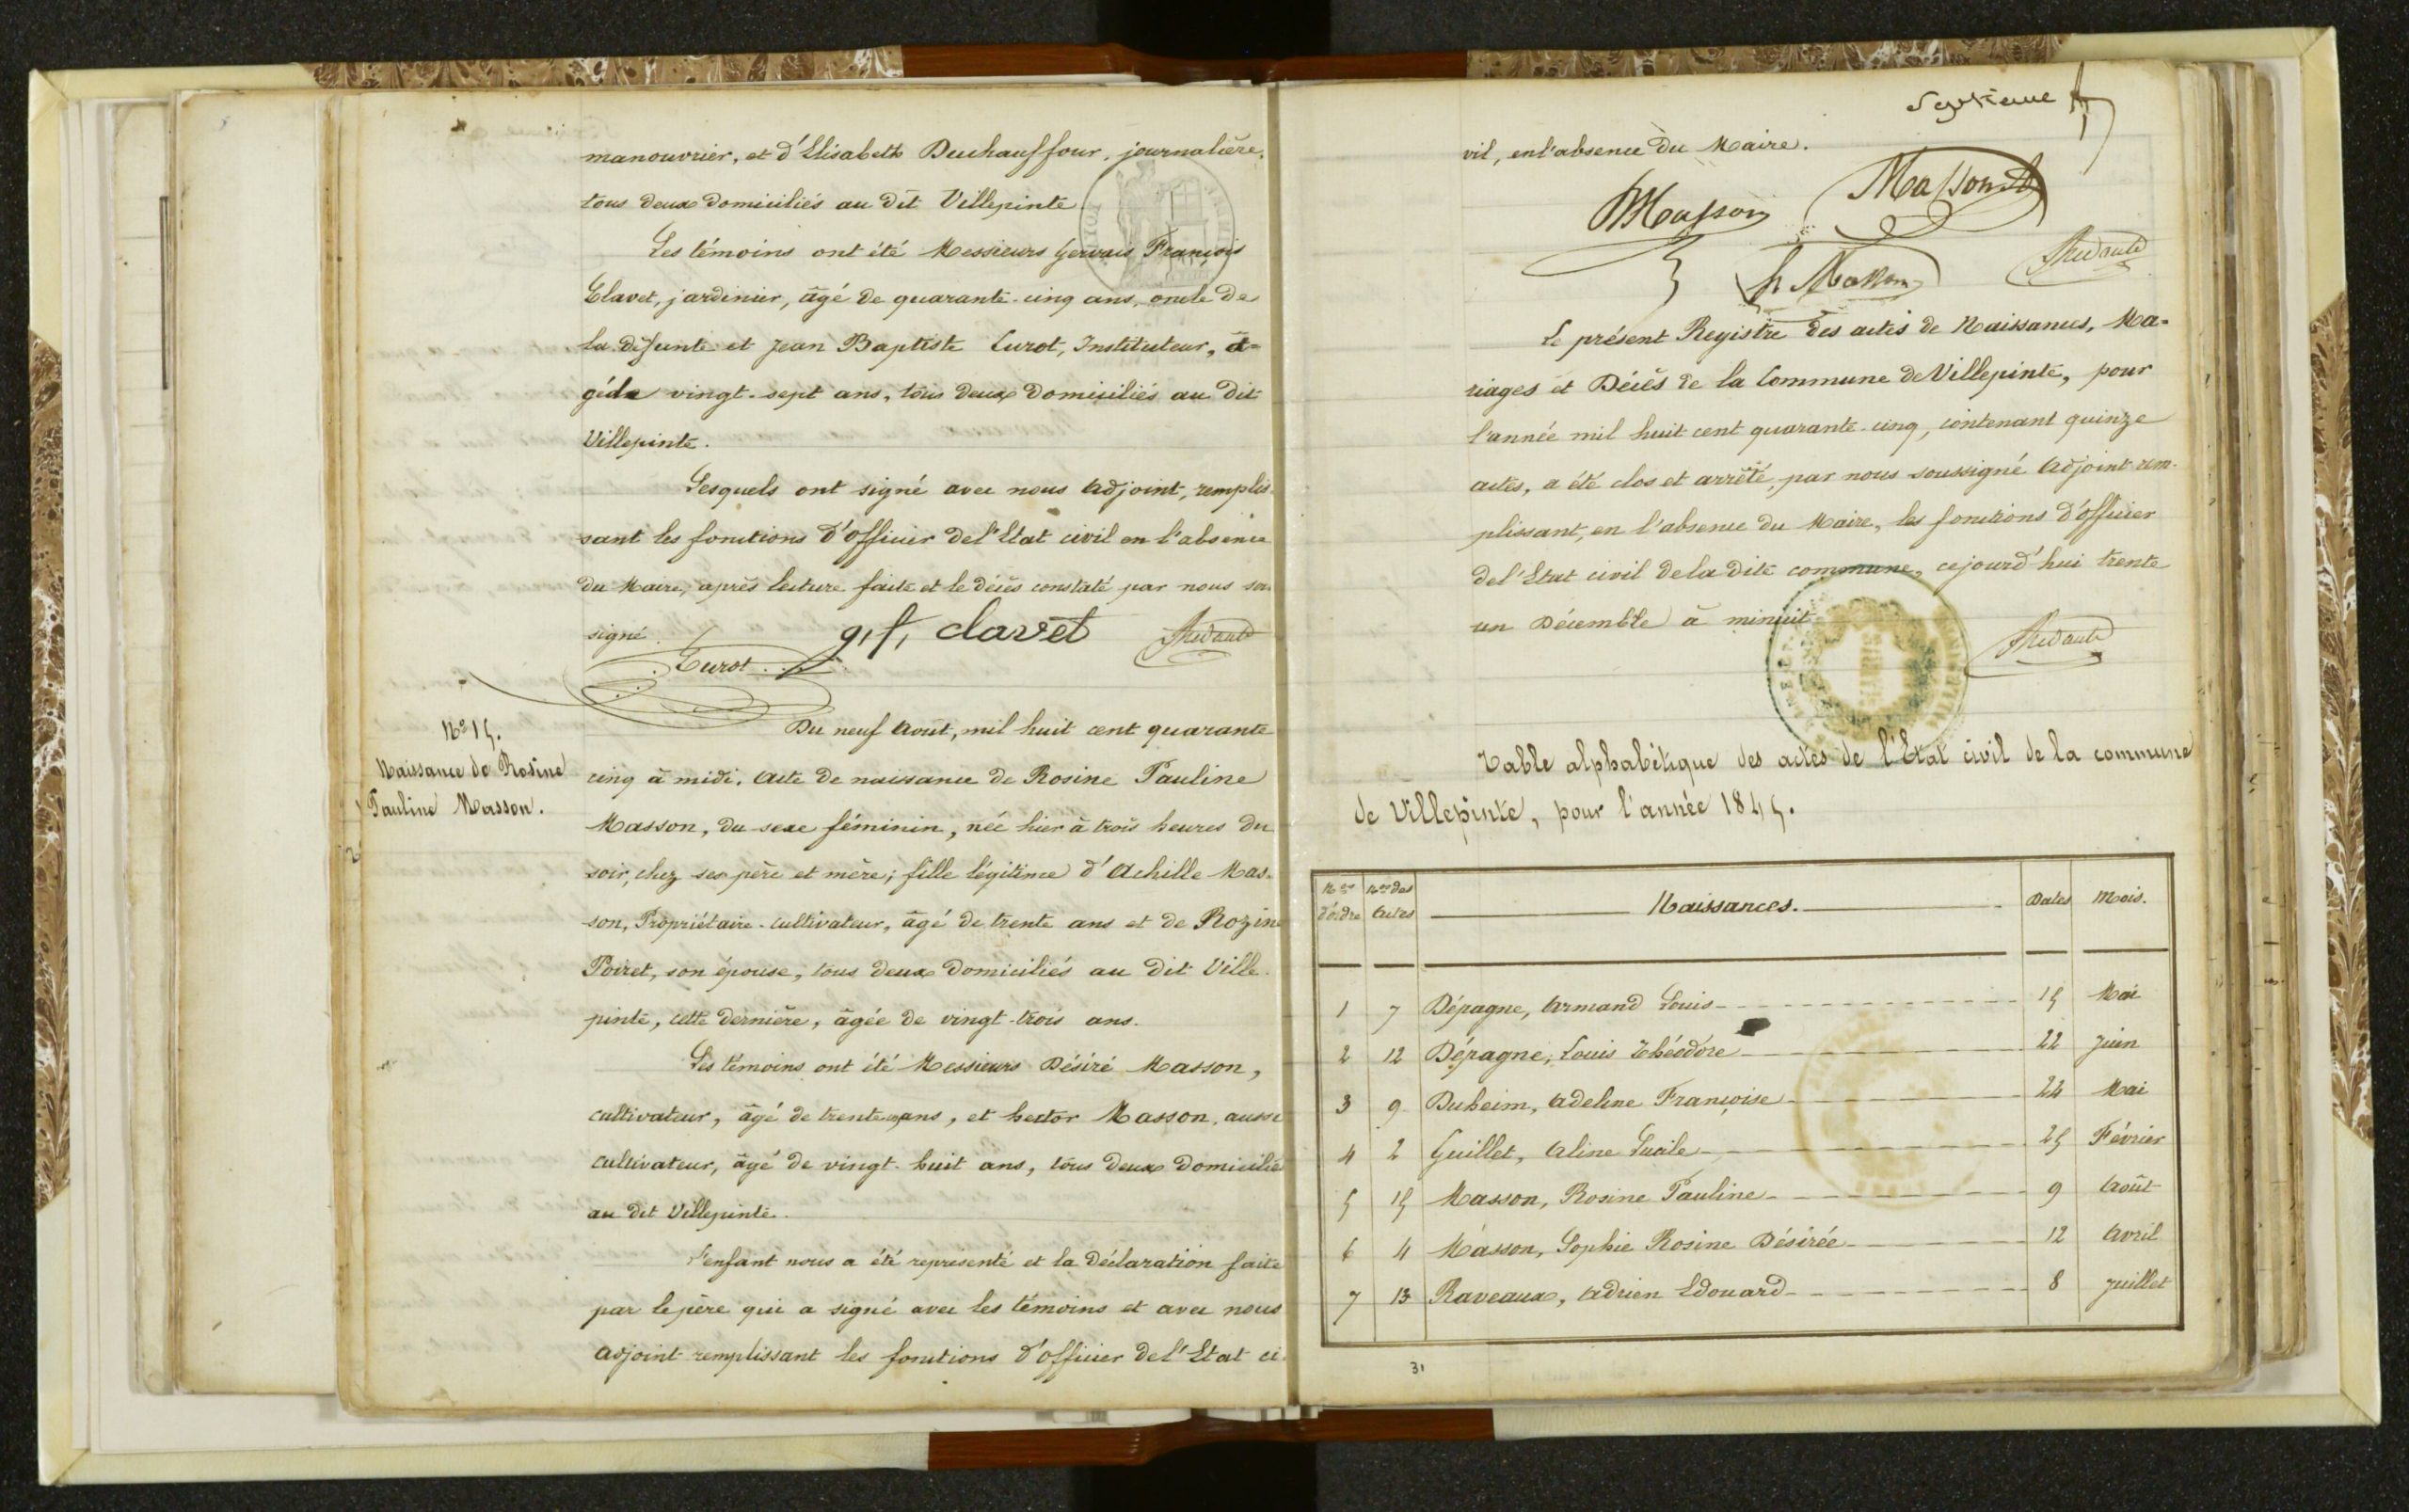 manouvrier, et d'Elisabeth Duchauffour, journalière,
tous deux domiciliés au dit Villepinte.
Les témoins ont été Messieurs Gervais François
Clavet, jardinier, âgé de quarante-cinq ans, oncle de
la défunte et Jean Baptiste Curot, Instituteur, â=
gé de vingt-sept ans, tous deux domiciliés au dit
Villepinte.
Lesquels ont signé avec nous Adjoint, remplis
sant les fonctions d'Officier de l'Etat civil en l'absence
du Maire, après lecture faite et le décès constaté par nous sou-
signé.
g, f, clavet
Curot
N° 15.
Naissance de Rosine
Pauline Masson.
Du neuf Août, mil huit cent quarante
cinq à midi. Acte de naissance de Rosine Pauline
Masson, du sexe féminin, née hier à trois heures du
soir, chez ses père et mère; fille légitime d'Achille Mas-
son, Propriétaire-cultivateur, âgé de trente ans et de Rozine
Poiret, son épouse, tous deux domiciliés au dit Ville-
pinte, cette dernière, âgée de vingt-trois ans.
Les témoins ont été Messieurs Désiré Masson,
cultivateur, âgé de trente ans, et hector Masson, aussi
cultivateur, âgé de vingt-huit ans, tous deux domicilié
au dit Villepinte.
L'enfant nous a été représenté et la déclaration faite
par le père qui a signé avec les témoins et avec nous
adjoint remplissant les fonctions d'officier de l'Etat ci-
vil, en l'absence du Maire.
Masson
Masson
h Masson
Le présent Registre des actes de Naissances, Ma=
riages et Décès de la Commune de Villepinte, pour
l'année mil huit cent quarante-cinq, contenant quinze
actes, a été clos et arrêté, par nous soussigné Adjoint rem-
plissant, en l'absence du Maire, les fonctions d'Officier
de l'Etat civil de la dite commune, cejourd'hui trente
un Décembre à minuit
Table alphabétique des actes de l'Etat civil de la commune
de Villepinte, pour l'année 1845.
Nos d'ordre Nos des Actes Naissances. Dates Mois.
1 7 Dépagne, Armand Louis 15 Mai
2 12 Dépagne, Louis Théodore 22 Juin
3 9 Duheim, Adeline Françoise 24 Mai
4 2 Guillet, Aline Lucile 25 Février
5 15 Masson, Rosine Pauline 9 Août
6 4 Masson, Sophie Rosine Désirée 12 Avril
7 13 Raveaux, Adrien Edouard 8 Juillet
31